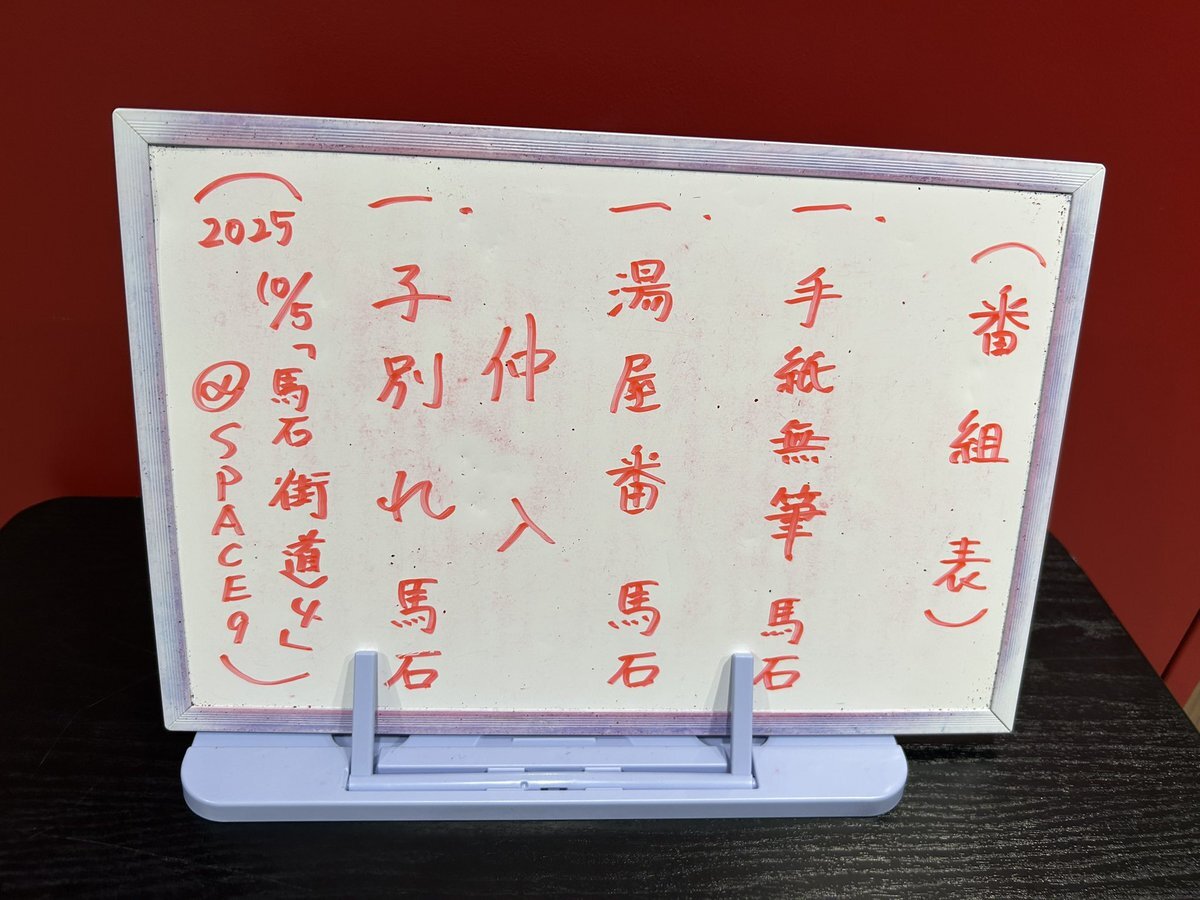 （番組表）
一．手紙無筆 馬石
一．湯屋番 馬石
仲入
一．子別れ 馬石
（2025 10/5「馬石街道4」
@SPACE9）